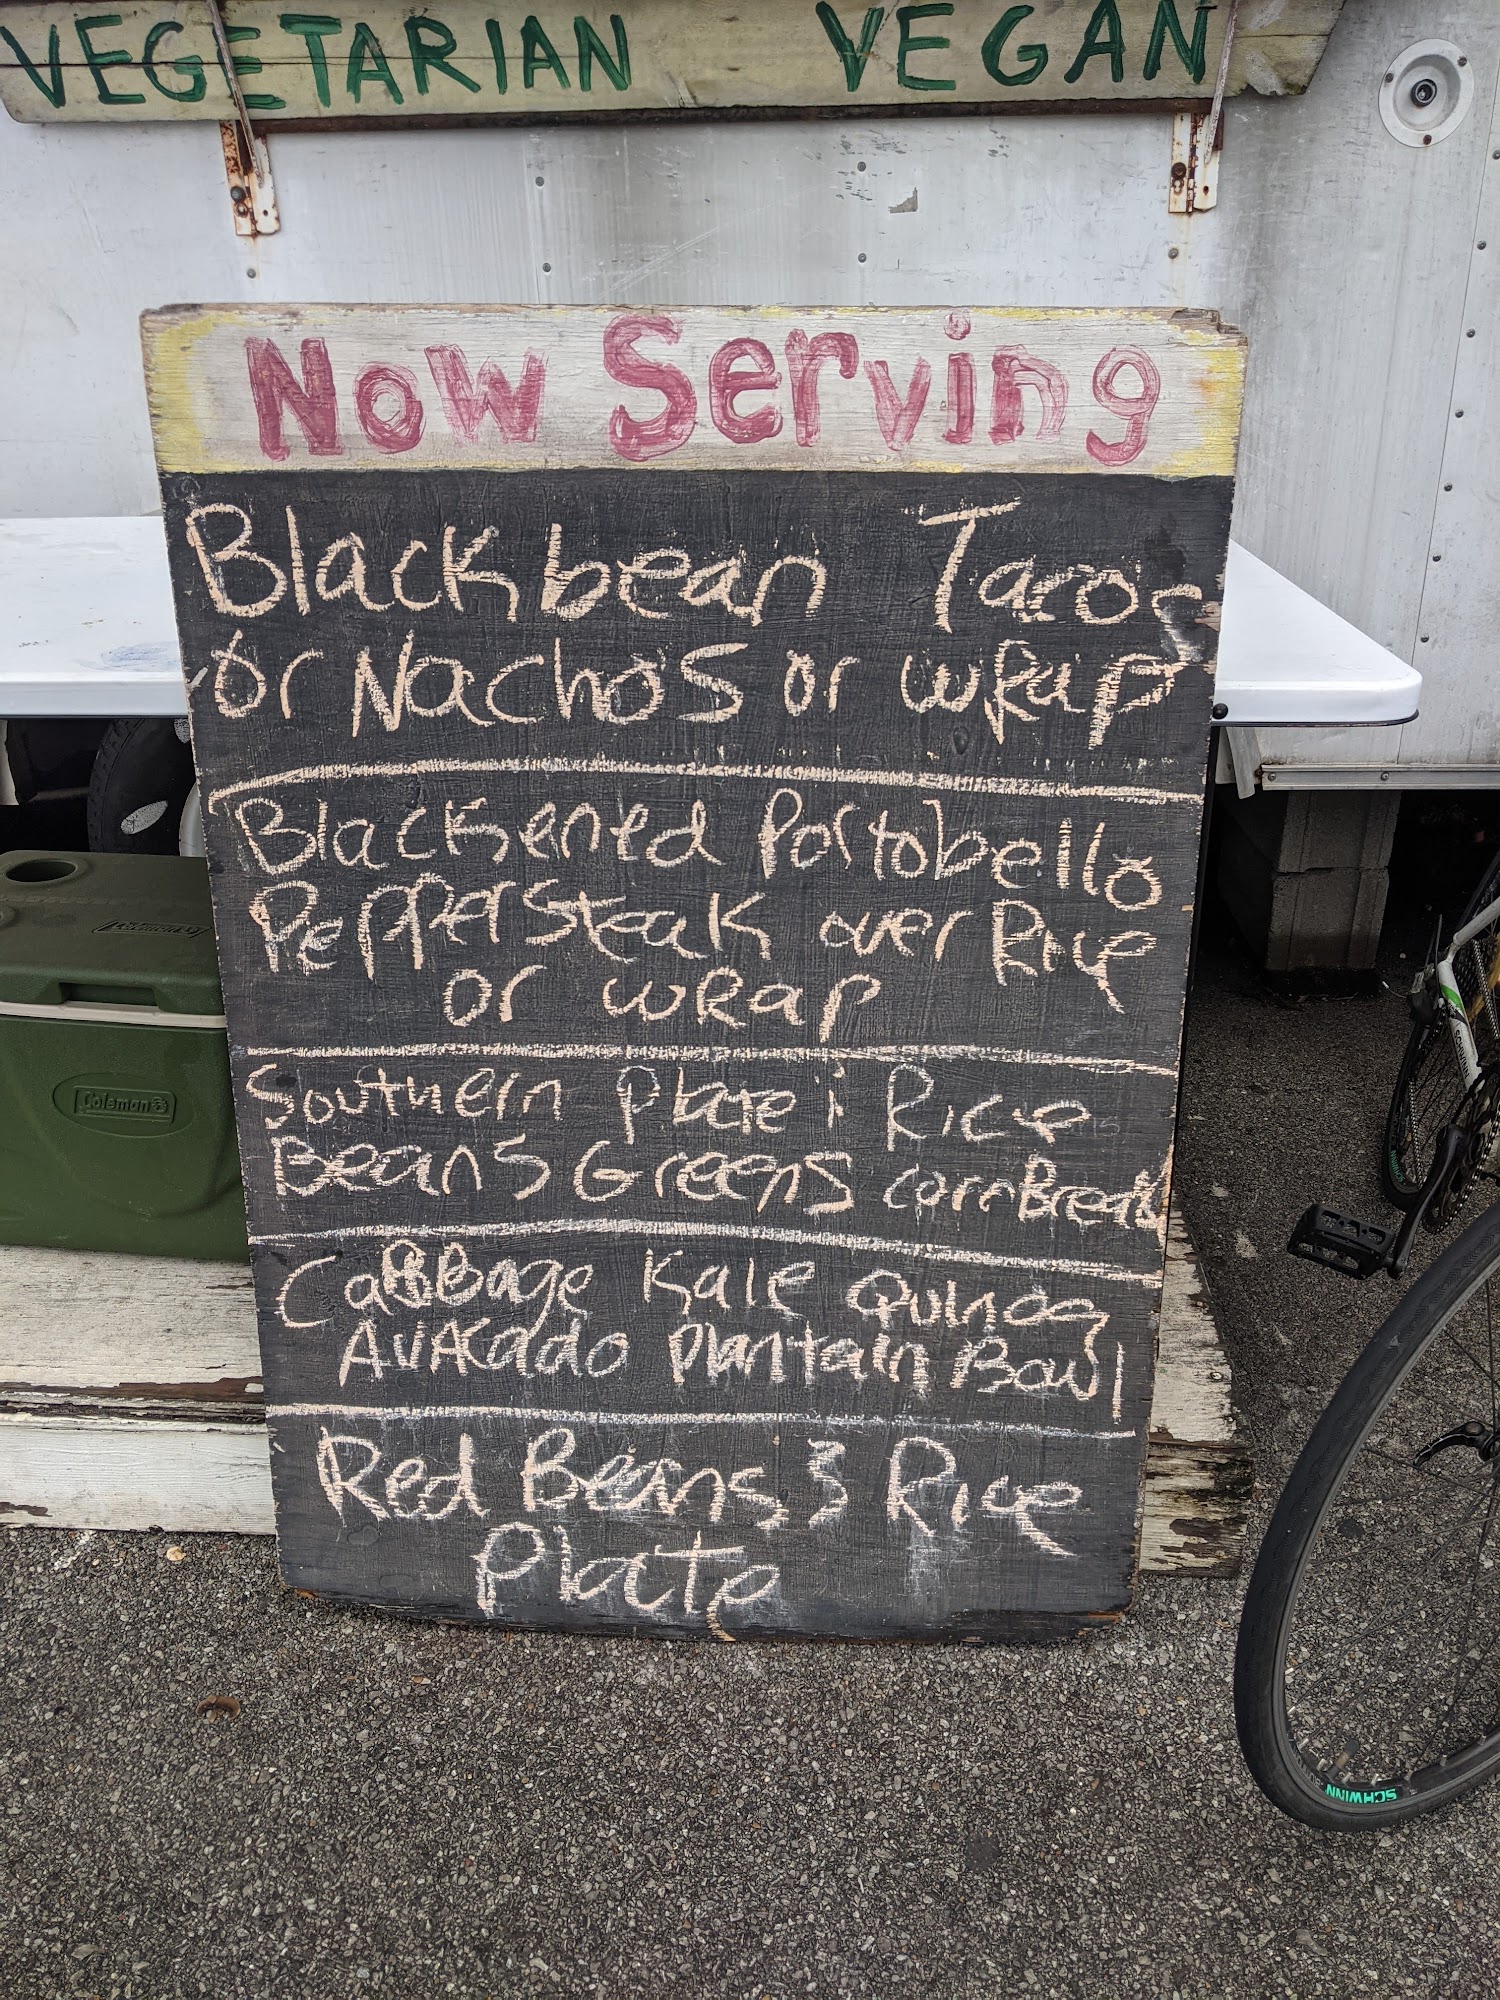 VEGETARIAN VEGAN
Now Serving
Blackbean Tacos
or Nachos or wRap
Blackened Portobello
Pepper Steak over Rice
or wRap
Southern plate : Rice
Beans Greens cornBread
CaBBage Kale Quinoa
AvAcado plantain Bowl
Red Beans & Rice
Plate
Coleman
Coleman
SCHWINN
SCHWINN